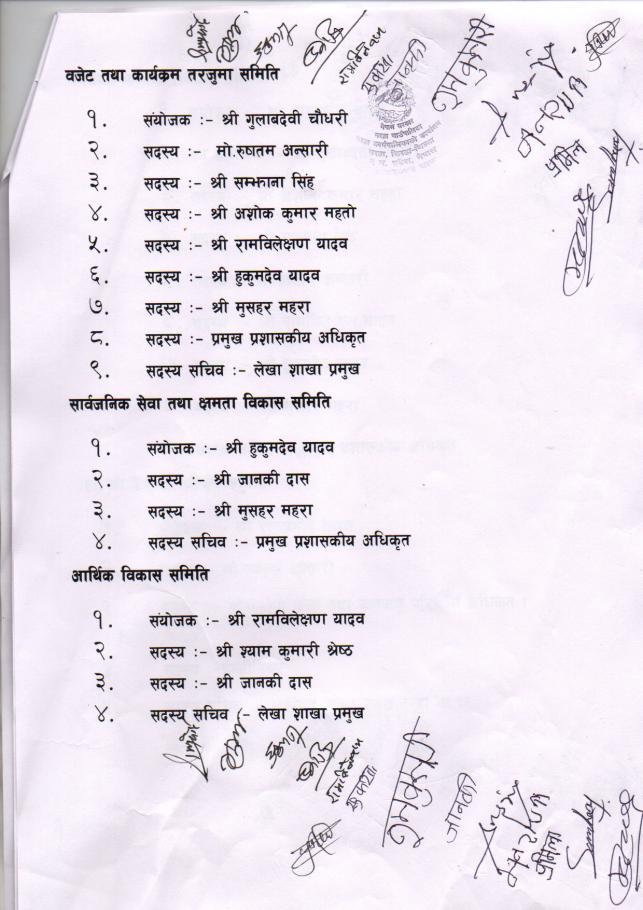 सुकदिया
जानकी
वजेट तथा कार्यक्रम तरजुमा समिति
१. संयोजक :- श्री गुलाबदेवी चौधरी
२. सदस्य :- मो.रुषतम अन्सारी
३. सदस्य :- श्री सम्झाना सिंह
४. सदस्य :- श्री अशोक कुमार महतो
५. सदस्य :- श्री रामविलेक्षण यादव
६. सदस्य :- श्री हुकुमदेव यादव
७. सदस्य :- श्री मुसहर महरा
८. सदस्य :- प्रमुख प्रशासकीय अधिकृत
९. सदस्य सचिव :- लेखा शाखा प्रमुख
सार्वजनिक सेवा तथा क्षमता विकास समिति
१. संयोजक :- श्री हुकुमदेव यादव
२. सदस्य :- श्री जानकी दास
३. सदस्य :- श्री मुसहर महरा
४. सदस्य सचिव :- प्रमुख प्रशासकीय अधिकृत
आर्थिक विकास समिति
१. संयोजक :- श्री रामविलेक्षण यादव
२. सदस्य :- श्री श्याम कुमारी श्रेष्ठ
३. सदस्य :- श्री जानकी दास
४. सदस्य सचिव :- लेखा शाखा प्रमुख
जानकी
प्रमिला